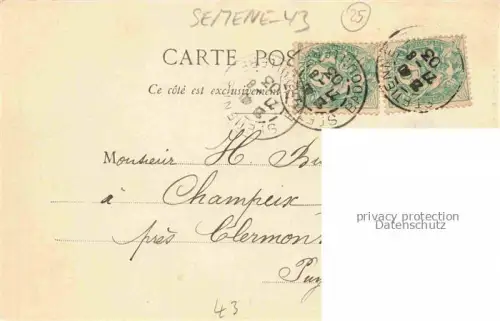 SEMENE-43
25
CARTE POS
Ce côté est exclusivement
Monsieur H Bu
à Champeix
près Clermon
Puy
43
privacy protection
Datenschutz